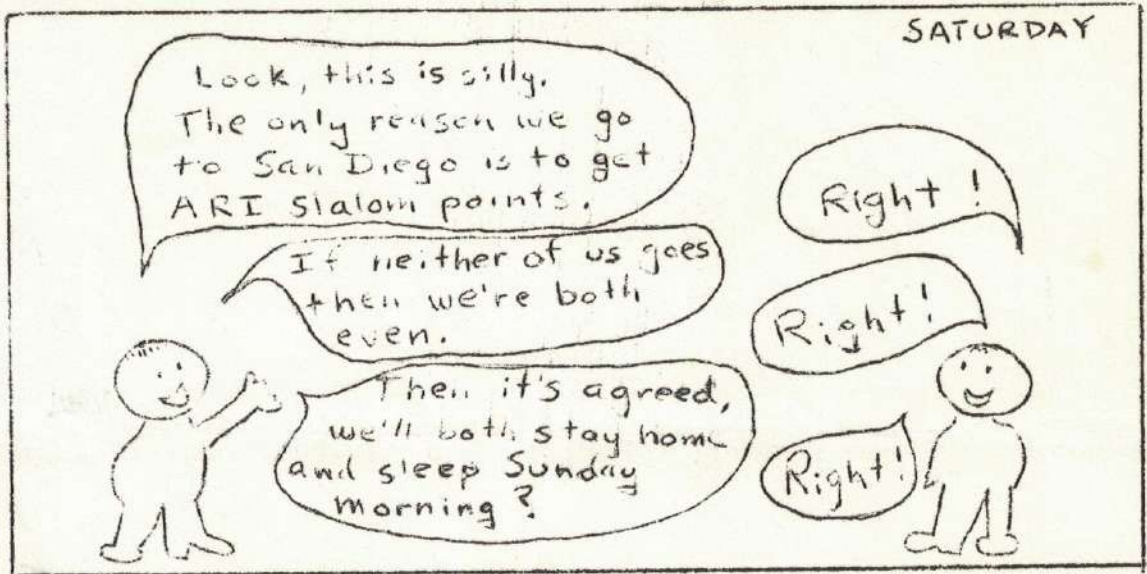 SATURDAY
Look, this is silly.
The only reason we go
to San Diego is to get
ARI slalom points.
Right!
If neither of us goes
then we're both
even.
Right!
Then it's agreed,
we'll both stay home
and sleep Sunday
morning?
Right!